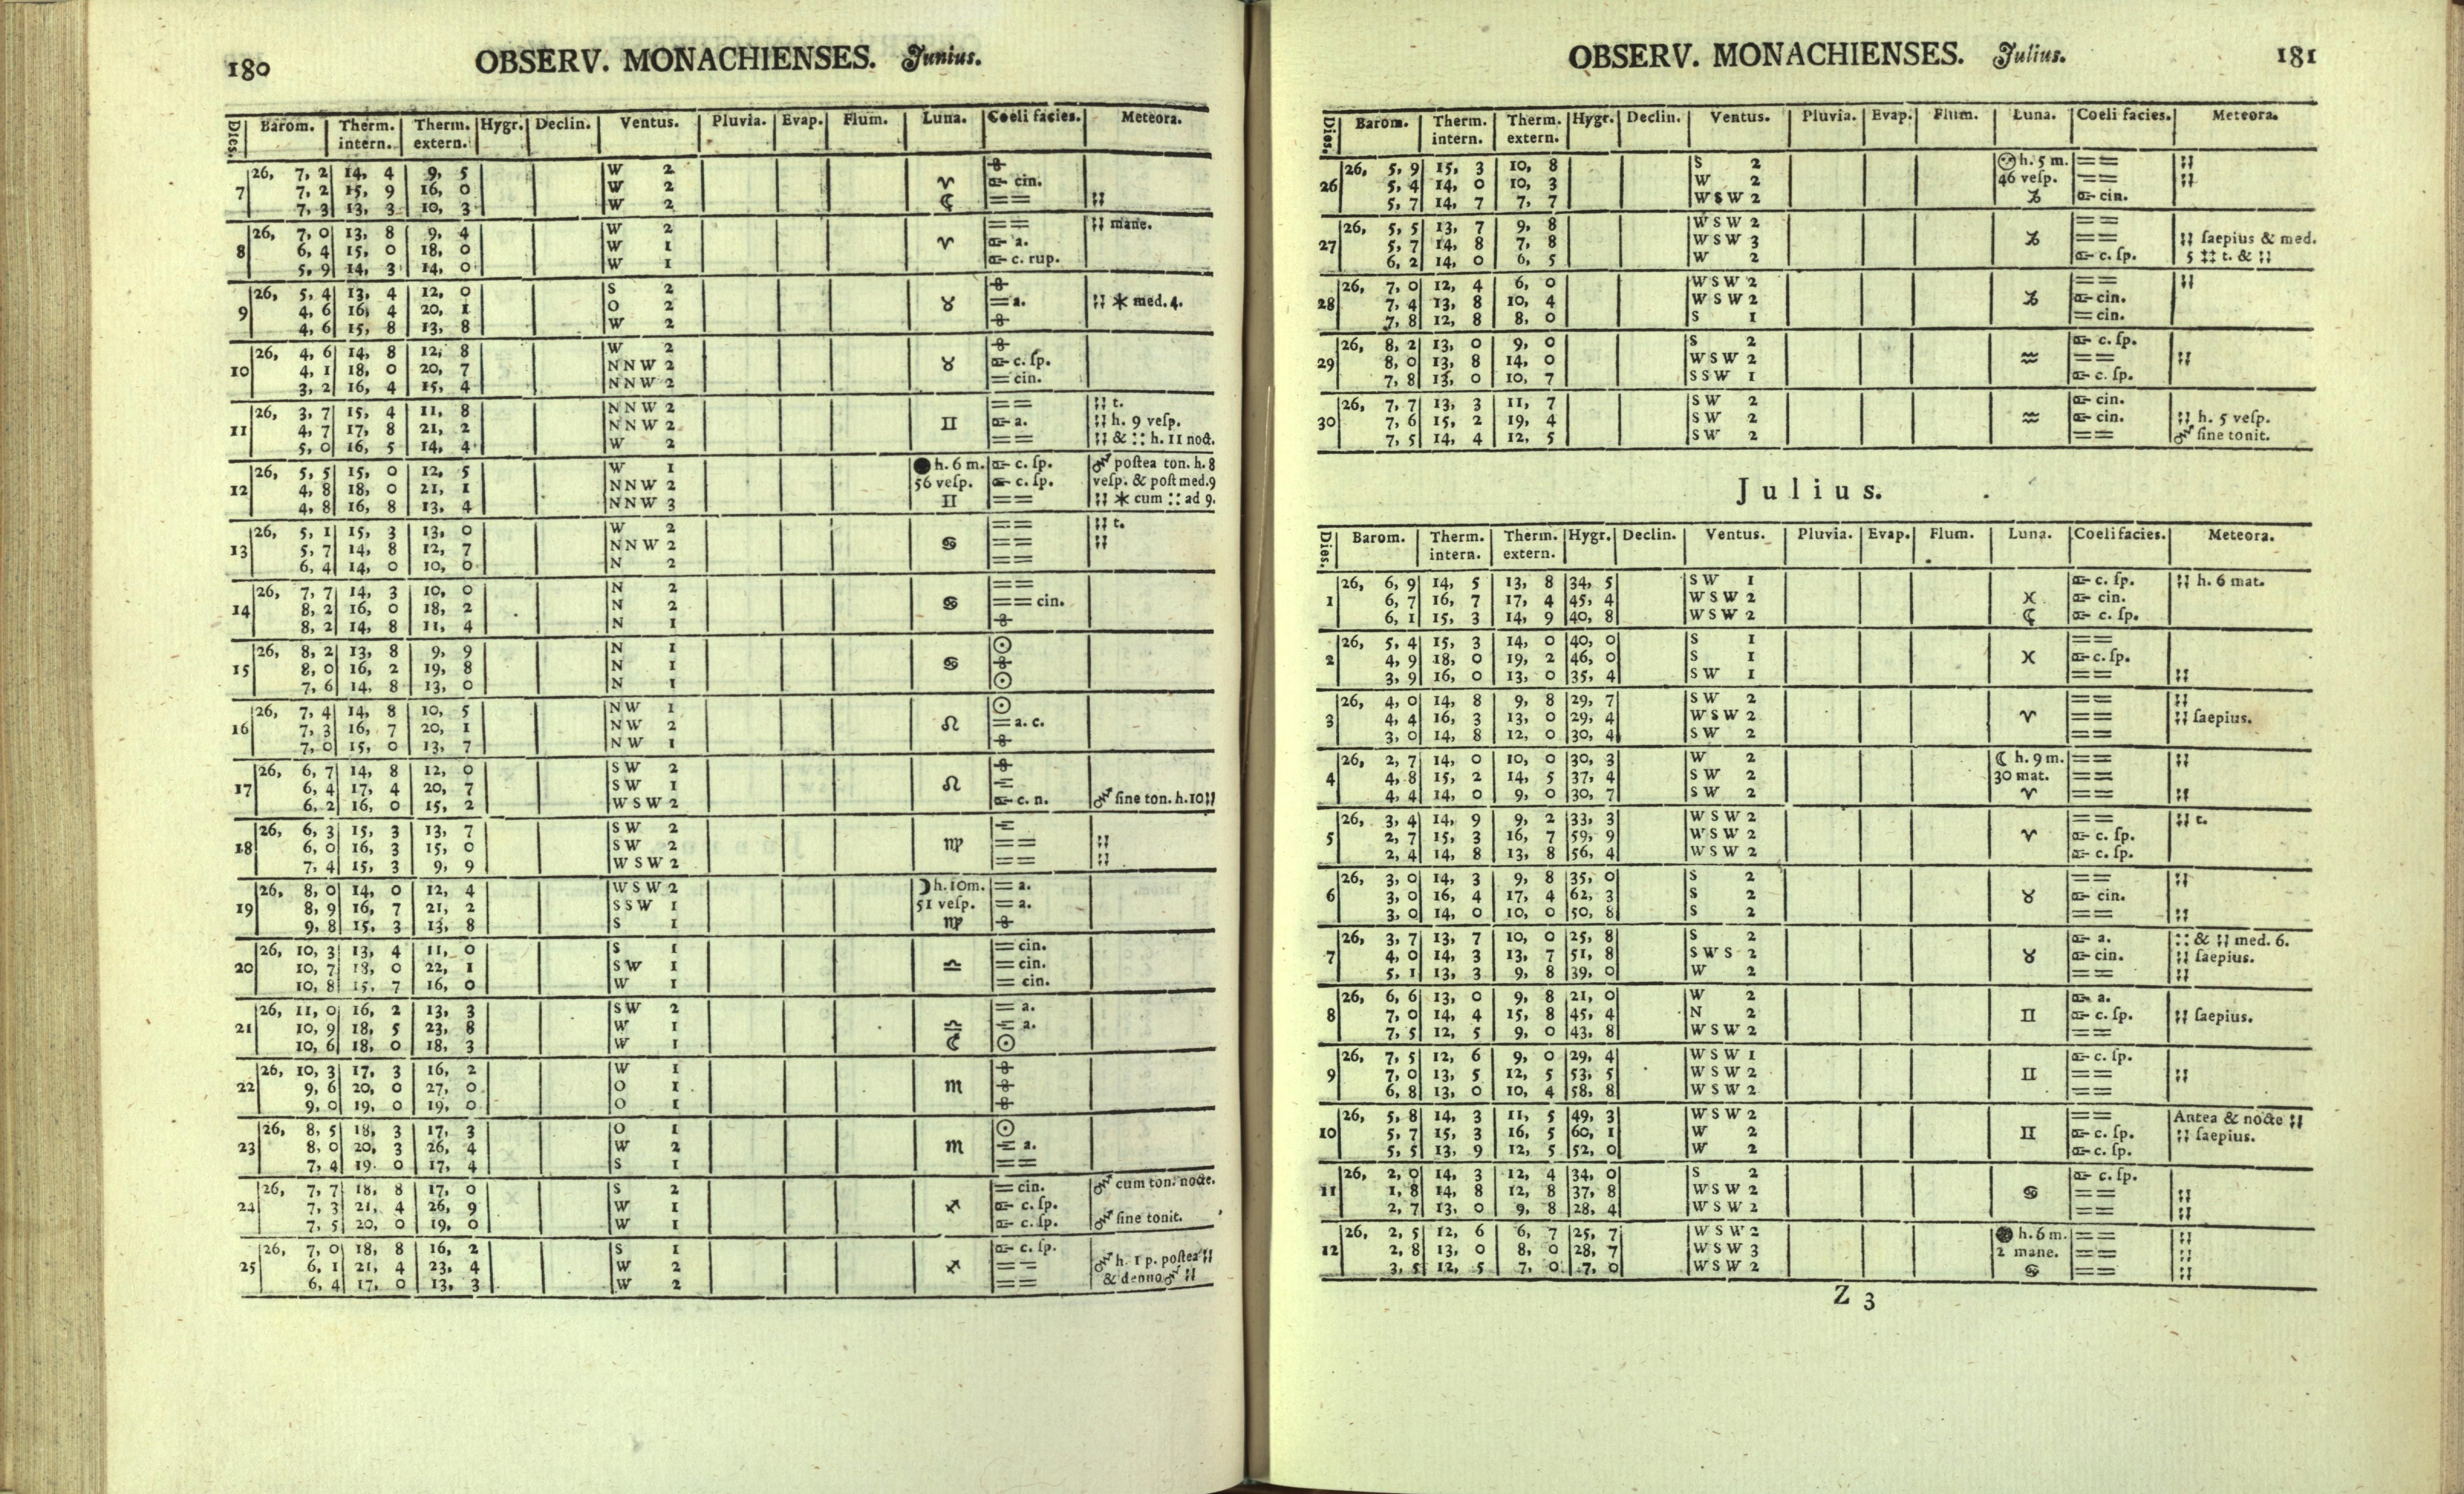 180 OBSERV. MONACHIENSES. Junius.
Dies. Barom. Therm. intern. Therm. extern. Hygr. Declin. Ventus. Pluvia. Evap. Flum. Luna. Coeli facies. Meteora.
26, 7, 2 14, 4 9, 5 W 2
7 7, 2 15, 9 16, 0 W 2 ♈ cin.
7, 3 13, 3 10, 3 W 2 ☾ ==
26, 7, 0 13, 8 9, 4 W 2 == mane.
8 6, 4 15, 0 18, 0 W 1 ♈ a.
5, 9 14, 3 14, 0 W 1 c. rup.
26, 5, 4 13, 4 12, 0 S 2
9 4, 6 16, 4 20, 1 O 2 ♉ = a. * med. 4.
4, 6 15, 8 13, 8 W 2
26, 4, 6 14, 8 12, 8 W 2
10 4, 1 18, 0 20, 7 NNW 2 ♉ c. ſp.
3, 2 16, 4 15, 4 NNW 2 = cin.
26, 3, 7 15, 4 11, 8 NNW 2 == t.
11 4, 7 17, 8 21, 2 NNW 2 ♊ a. h. 9 veſp.
5, 0 16, 5 14, 4 W 2 == & :: h. 11 noct.
26, 5, 5 15, 0 12, 5 W 1 ● h. 6 m. c. ſp. poſtea ton. h. 8
12 4, 8 18, 0 21, 1 NNW 2 56 veſp. c. ſp. veſp. & poſt med. 9
4, 8 16, 8 13, 4 NNW 3 ♊ == * cum :: ad 9.
26, 5, 1 15, 3 13, 0 W 2 == t.
13 5, 7 14, 8 12, 7 NNW 2 ♋ ==
6, 4 14, 0 10, 0 N 2 ==
26, 7, 7 14, 3 10, 0 N 2 ==
14 8, 2 16, 0 18, 2 N 2 ♋ == cin.
8, 2 14, 8 11, 4 N 1
26, 8, 2 13, 8 9, 9 N 1 ☉
15 8, 0 16, 2 19, 8 N 1 ♋
7, 6 14, 8 13, 0 N 1 ☉
26, 7, 4 14, 8 10, 5 NW 1 ☉
16 7, 3 16, 7 20, 1 NW 2 ♌ = a. c.
7, 0 15, 0 13, 7 NW 1
26, 6, 7 14, 8 12, 0 SW 2
17 6, 4 17, 4 20, 7 SW 1 ♌ =
6, 2 16, 0 15, 2 WSW 2 c. n. ſine ton. h. 10
26, 6, 3 15, 3 13, 7 SW 2 =
18 6, 0 16, 3 15, 0 SW 2 ♍ ==
7, 4 15, 3 9, 9 WSW 2 ==
26, 8, 0 14, 0 12, 4 WSW 2 ☽ h. 10 m. = a.
19 8, 9 16, 7 21, 2 SSW 1 51 veſp. = a.
9, 8 15, 3 13, 8 S 1 ♍
26, 10, 3 13, 4 11, 0 S 1 = cin.
20 10, 7 18, 0 22, 1 SW 1 ♎ = cin.
10, 8 15, 7 16, 0 W 1 = cin.
26, 11, 0 16, 2 13, 3 SW 2 = a.
21 10, 9 18, 5 23, 8 W 1 ♎ = a.
10, 6 18, 0 18, 3 W 1 ☾ ☉
26, 10, 3 17, 3 16, 2 W 1
22 9, 6 20, 0 27, 0 O 1 ♏
9, 0 19, 0 19, 0 O 1
26, 8, 5 18, 3 17, 3 O 1 ☉
23 8, 0 20, 3 26, 4 W 2 ♏ = a.
7, 4 19. 0 17, 4 S 1 ==
26, 7, 7 18, 8 17, 0 S 2 = cin. cum ton. nocte.
24 7, 3 21, 4 26, 9 W 1 ♐ c. ſp.
7, 5 20, 0 19, 0 W 1 c. ſp. ſine tonit.
26, 7, 0 18, 8 16, 2 S 1 c. ſp.
25 6, 1 21, 4 23, 4 W 2 ♐ == h. 1 p. poſtea
6, 4 17, 0 13, 3 W 2 == & denuo
OBSERV. MONACHIENSES. Julius. 181
Dies. Barom. Therm. intern. Therm. extern. Hygr. Declin. Ventus. Pluvia. Evap. Flum. Luna. Coeli facies. Meteora.
26, 5, 9 15, 3 10, 8 S 2 h. 5 m. ==
26 5, 4 14, 0 10, 3 W 2 46 veſp. ==
5, 7 14, 7 7, 7 WSW 2 ♑ cin.
26, 5, 5 13, 7 9, 8 WSW 2 ==
27 5, 7 14, 8 7, 8 WSW 3 ♑ == ſaepius & med.
6, 2 14, 0 6, 5 W 2 c. ſp. 5 t. &
26, 7, 0 12, 4 6, 0 WSW 2 ==
28 7, 4 13, 8 10, 4 WSW 2 ♑ cin.
7, 8 12, 8 8, 0 S 1 = cin.
26, 8, 2 13, 0 9, 0 S 2 c. ſp.
29 8, 0 13, 8 14, 0 WSW 2 ♒ ==
7, 8 13, 0 10, 7 SSW 1 c. ſp.
26, 7, 7 13, 3 11, 7 SW 2 cin.
30 7, 6 15, 2 19, 4 SW 2 ♒ cin. h. 5 veſp.
7, 5 14, 4 12, 5 SW 2 == ſine tonit.
Julius.
Dies. Barom. Therm. intern. Therm. extern. Hygr. Declin. Ventus. Pluvia. Evap. Flum. Luna. Coeli facies. Meteora.
26, 6, 9 14, 5 13, 8 34, 5 SW 1 c. ſp. h. 6 mat.
1 6, 7 16, 7 17, 4 45, 4 WSW 2 ♓ cin.
6, 1 15, 3 14, 9 40, 8 WSW 2 ☾ c. ſp.
26, 5, 4 15, 3 14, 0 40, 0 S 1 ==
2 4, 9 18, 0 19, 2 46, 0 S 1 ♓ c. ſp.
3, 9 16, 0 13, 0 35, 4 SW 1 ==
26, 4, 0 14, 8 9, 8 29, 7 SW 2 ==
3 4, 4 16, 3 13, 0 29, 4 WSW 2 ♈ == ſaepius.
3, 0 14, 8 12, 0 30, 4 SW 2 ==
26, 2, 7 14, 0 10, 0 30, 3 W 2 ☾ h. 9 m. ==
4 4, 8 15, 2 14, 5 37, 4 SW 2 30 mat. ==
4, 4 14, 0 9, 0 30, 7 SW 2 ♈ ==
26, 3, 4 14, 9 9, 2 33, 3 WSW 2 == t.
5 2, 7 15, 3 16, 7 59, 9 WSW 2 ♈ c. ſp.
2, 4 14, 8 13, 8 56, 4 WSW 2 c. ſp.
26, 3, 0 14, 3 9, 8 35, 0 S 2 ==
6 3, 0 16, 4 17, 4 62, 3 S 2 ♉ cin.
3, 0 14, 0 10, 0 50, 8 S 2 ==
26, 3, 7 13, 7 10, 0 25, 8 S 2 a. :: & med. 6.
7 4, 0 14, 3 13, 7 51, 8 SWS 2 ♉ cin. ſaepius.
5, 1 13, 3 9, 8 39, 0 W 2 ==
26, 6, 6 13, 0 9, 8 21, 0 W 2 a.
8 7, 0 14, 4 15, 8 45, 4 N 2 ♊ c. ſp. ſaepius.
7, 5 12, 5 9, 0 43, 8 WSW 2 ==
26, 7, 5 12, 6 9, 0 29, 4 WSW 1 c. ſp.
9 7, 0 13, 5 12, 5 53, 5 WSW 2 ♊ ==
6, 8 13, 0 10, 4 58, 8 WSW 2 ==
26, 5, 8 14, 3 11, 5 49, 3 WSW 2 == Antea & nocte
10 5, 7 15, 3 16, 5 60, 1 W 2 ♊ c. ſp. ſaepius.
5, 5 13, 9 12, 5 52, 0 W 2 c. ſp.
26, 2, 0 14, 3 12, 4 34, 0 S 2 c. ſp.
11 1, 8 14, 8 12, 8 37, 8 WSW 2 ♋ ==
2, 7 13, 0 9, 8 28, 4 WSW 2 ==
26, 2, 5 12, 6 6, 7 25, 7 WSW 2 ● h. 6 m. ==
12 2, 8 13, 0 8, 0 28, 7 WSW 3 2 mane. ==
3, 5 12, 5 7, 0 7, 0 WSW 2 ♋ ==
Z 3